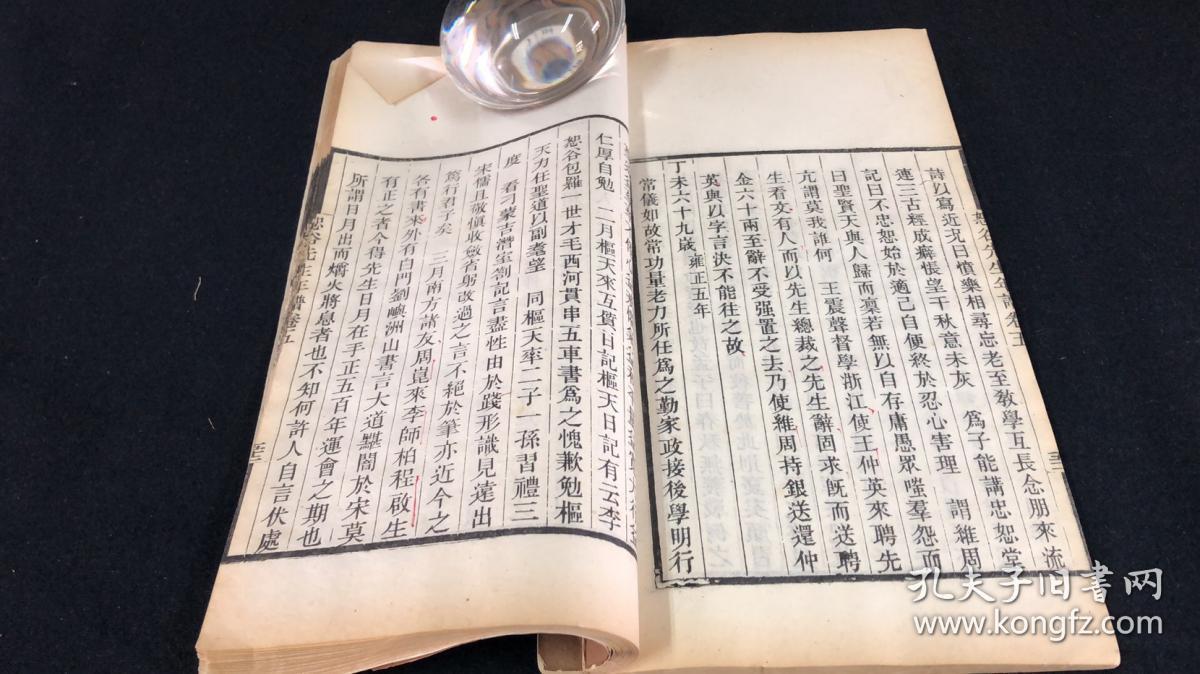 詩以寫近況曰憤樂相尋忘老至敎學互長念朋來流
連三古經成癖悵望千秋意未灰　爲子能講忠恕堂
記曰不忠恕始於適己自便終於忍心害理　謂維周
曰聖賢天與人歸而稟若無以自存庸愚眾嗤羣怨而
亢謂莫我誰何　王震聲督學浙江使王仲英來聘先
生看文有人而以先生總裁之先生辭固求旣而送聘
金六十兩至辭不受强置之去乃使維周持銀送還仲
英與以字言決不能往之故
丁未六十九歲雍正五年
常儀如故常功量老力所任爲之勤家政接後學明行
恕谷先生年譜卷五
仁厚自勉　二月樞天來互質日記樞天日記有云李
恕谷包羅一世才毛西河貫串五車書爲之愧歉勉樞
天力任聖道以副耄望　同樞天率二子一孫習禮三
度　看刁蒙吉潛室劄記言盡性由於踐形識見遠出
宋儒且敬愼收斂省躬改過之言不絕於筆亦近今之
篤行君子矣　三月南方諸友周崑來李師柏程啟生
各有書來外有白門劉嶼洲山書言大道黮闇於宋莫
有正之者今得先生日月在手正五百年運會之期也
所謂日月出而爝火將息者也不知何許人自言伏處
恕谷先生年譜卷五
孔夫子旧书网
www.kongfz.com